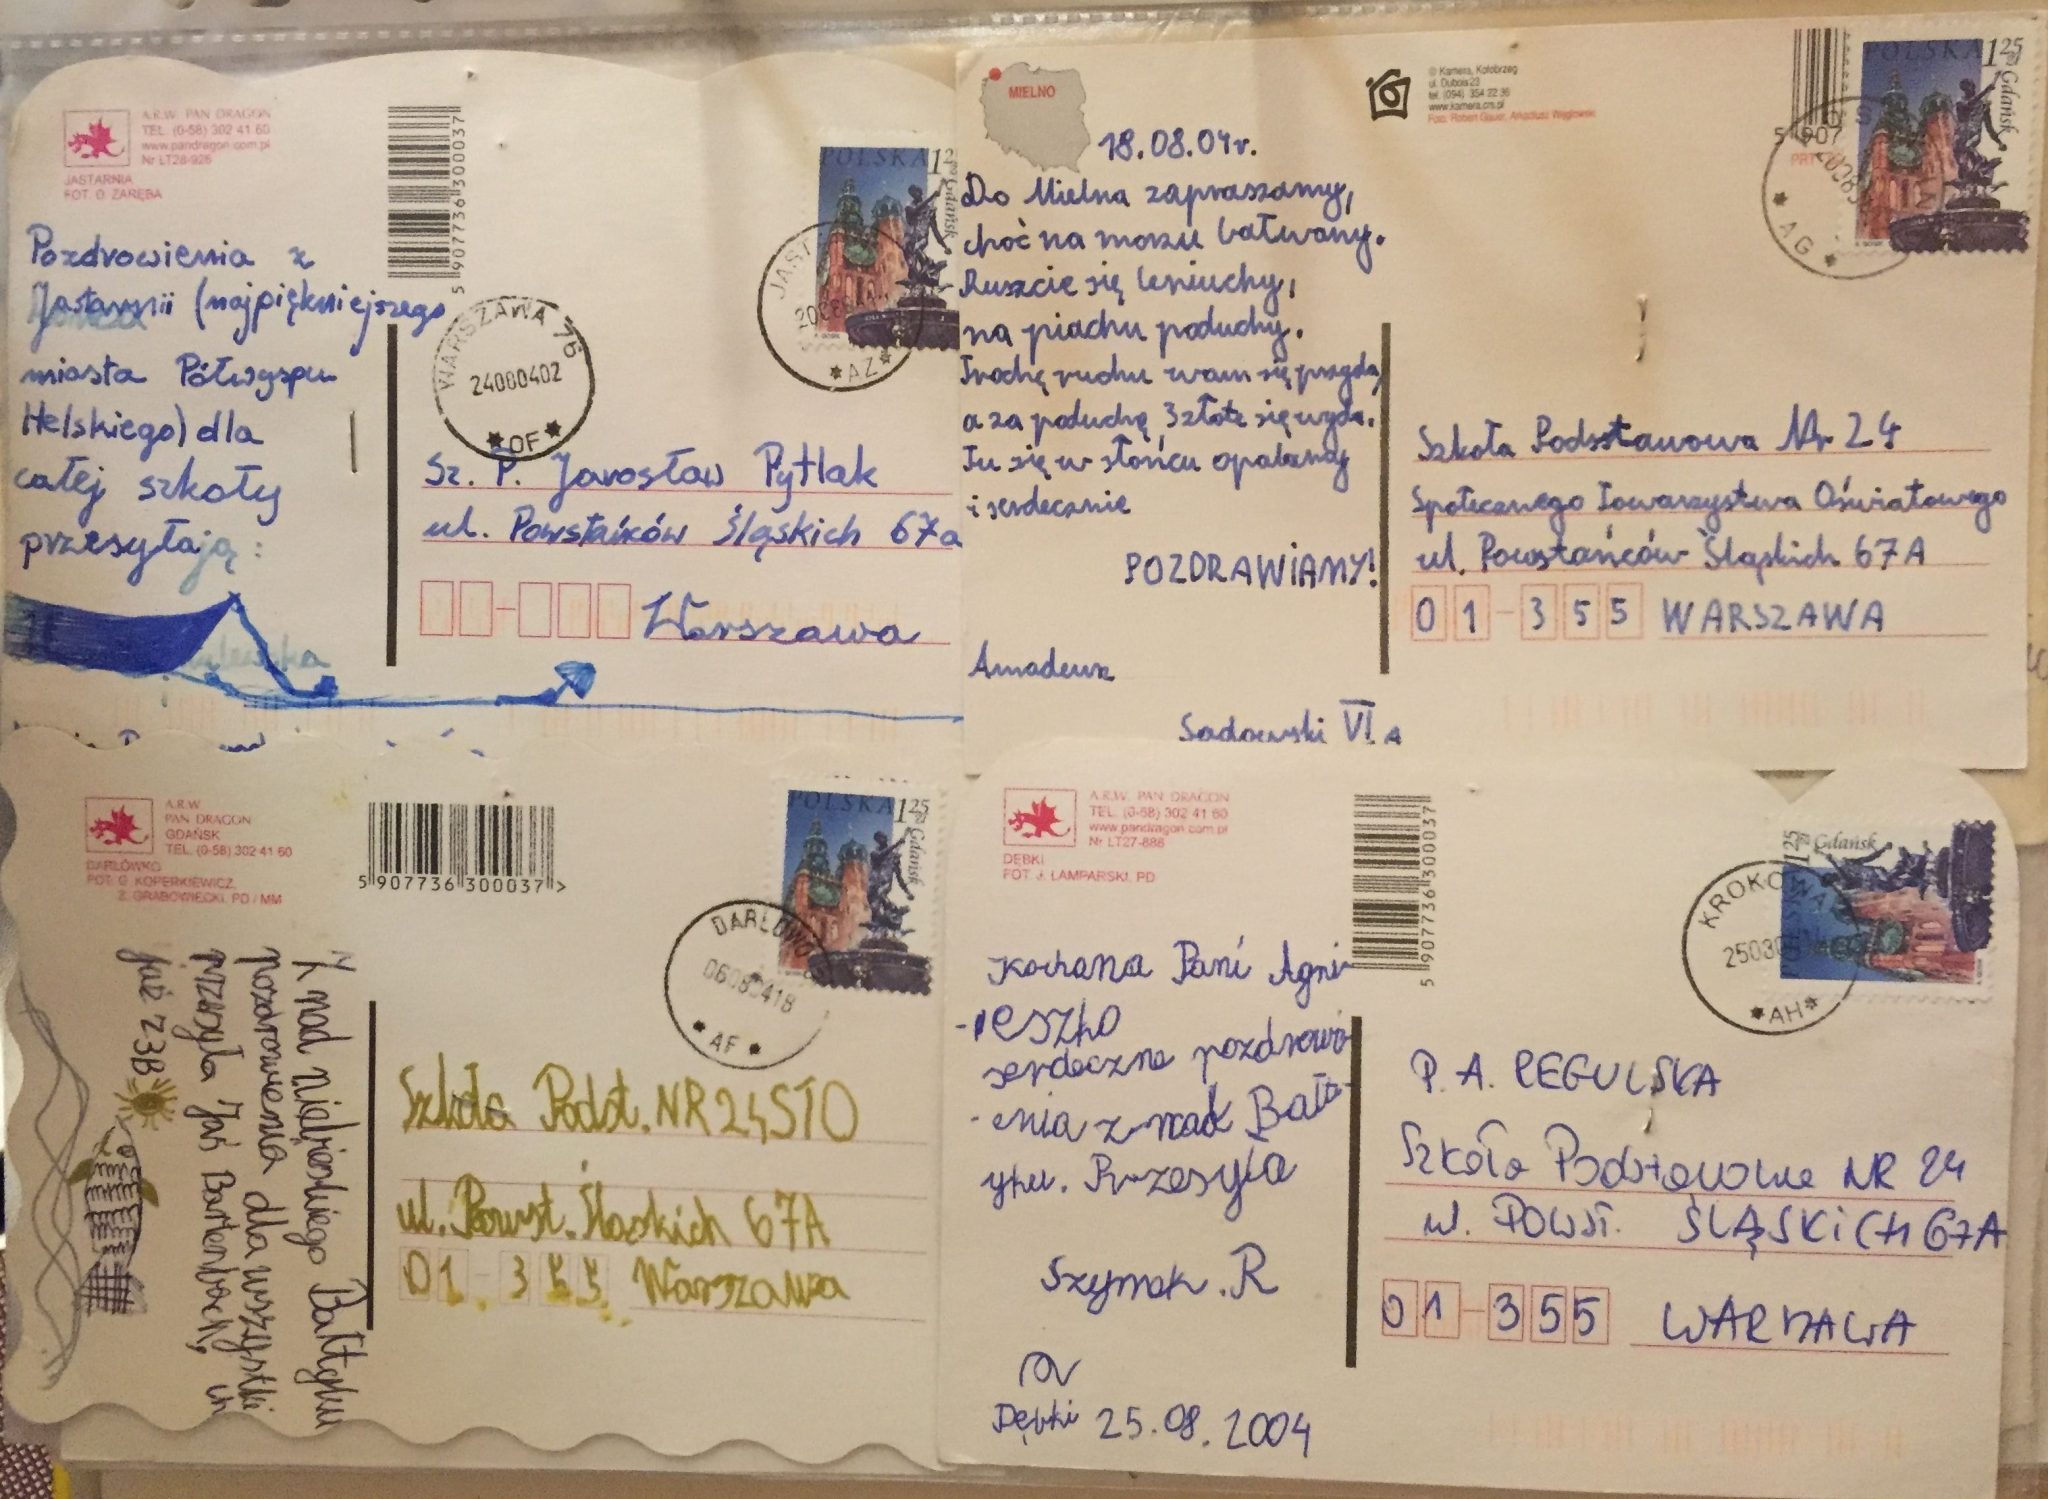 A.R.W. PAN DRAGON
TEL. (0-58) 302 41 60
www.pandragon.com.pl
Nr LT28-926
JASTARNIA
FOT. O. ZARĘBA
5 907736 300037
POLSKA
Gdańsk
JAST
*AZ*
WARSZAWA 76
24080402
*OF*
Pozdrowienia z
Jastarnii (najpiękniejszego
miasta Półwyspu
Helskiego) dla
całej szkoły
przesyłają:
Sz. P. Jarosław Pytlak
ul. Powstańców Śląskich 67a
Warszawa
MIELNO
© Kamera, Kołobrzeg
ul. Dubois 23
tel. (094) 354 22 36
www.kamera.cm.pl
Foto: Robert Gauer, Arkadiusz Węglowski
POLSKA 1 25
Gdańsk
5 907
* AG *
18.08.04r.
Do Mielna zapraszamy,
choć na morzu bałwany.
Ruszcie się leniuchy,
na piachu poduchy.
Trochę ruchu wam się przyda,
a za poduchę 3 złote się wyda.
Tu się w słońcu opalamy
i serdecznie
POZDRAWIAMY!
Amadeusz
Sadowski VI A
Szkoła Podsstawowa Nr 24
Społecznego Towarzystwa Oświatowego
ul. Powstańców Śląskich 67A
01-355 WARSZAWA
A.R.W.
PAN DRAGON
GDAŃSK
TEL. (0-58) 302 41 60
DARŁÓWKO
FOT. G. KOPERKIEWICZ,
Z. GRABOWIECKI, PD / MM
5 907736 300037 >
POLSKA 1 25
Gdańsk
DARŁOWO
* AF *
Z nad niebieskiego Bałtyku
pozdrowienia dla wszystkich
przesyła Jaś Bartenbach,
już z 3B
Szkoła Podst. NR 24 STO
ul. Powst. Śląskich 67A
01-355 Warszawa
A.R.W. PAN DRAGON
TEL. (0-58) 302 41 60
www.pandragon.com.pl
Nr LT27-886
DĘBKI
FOT. J. LAMPARSKI, PD
5 907736 300037
1 25
Gdańsk
KROKOWA
*AH*
Kochana Pani Agni-
-eszko
serdeczne pozdrowi-
-enia z nad Bałt-
yku. Przesyła
Szymek. R
Dębki 25.08.2004
P. A. REGULSKA
Szkoła Podstawowa NR 24
ul. POWST. ŚLĄSKICH 67A
01-355 WARSZAWA